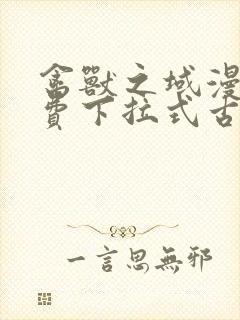 禽獸之域漫
費下拉式古
一言思無邪